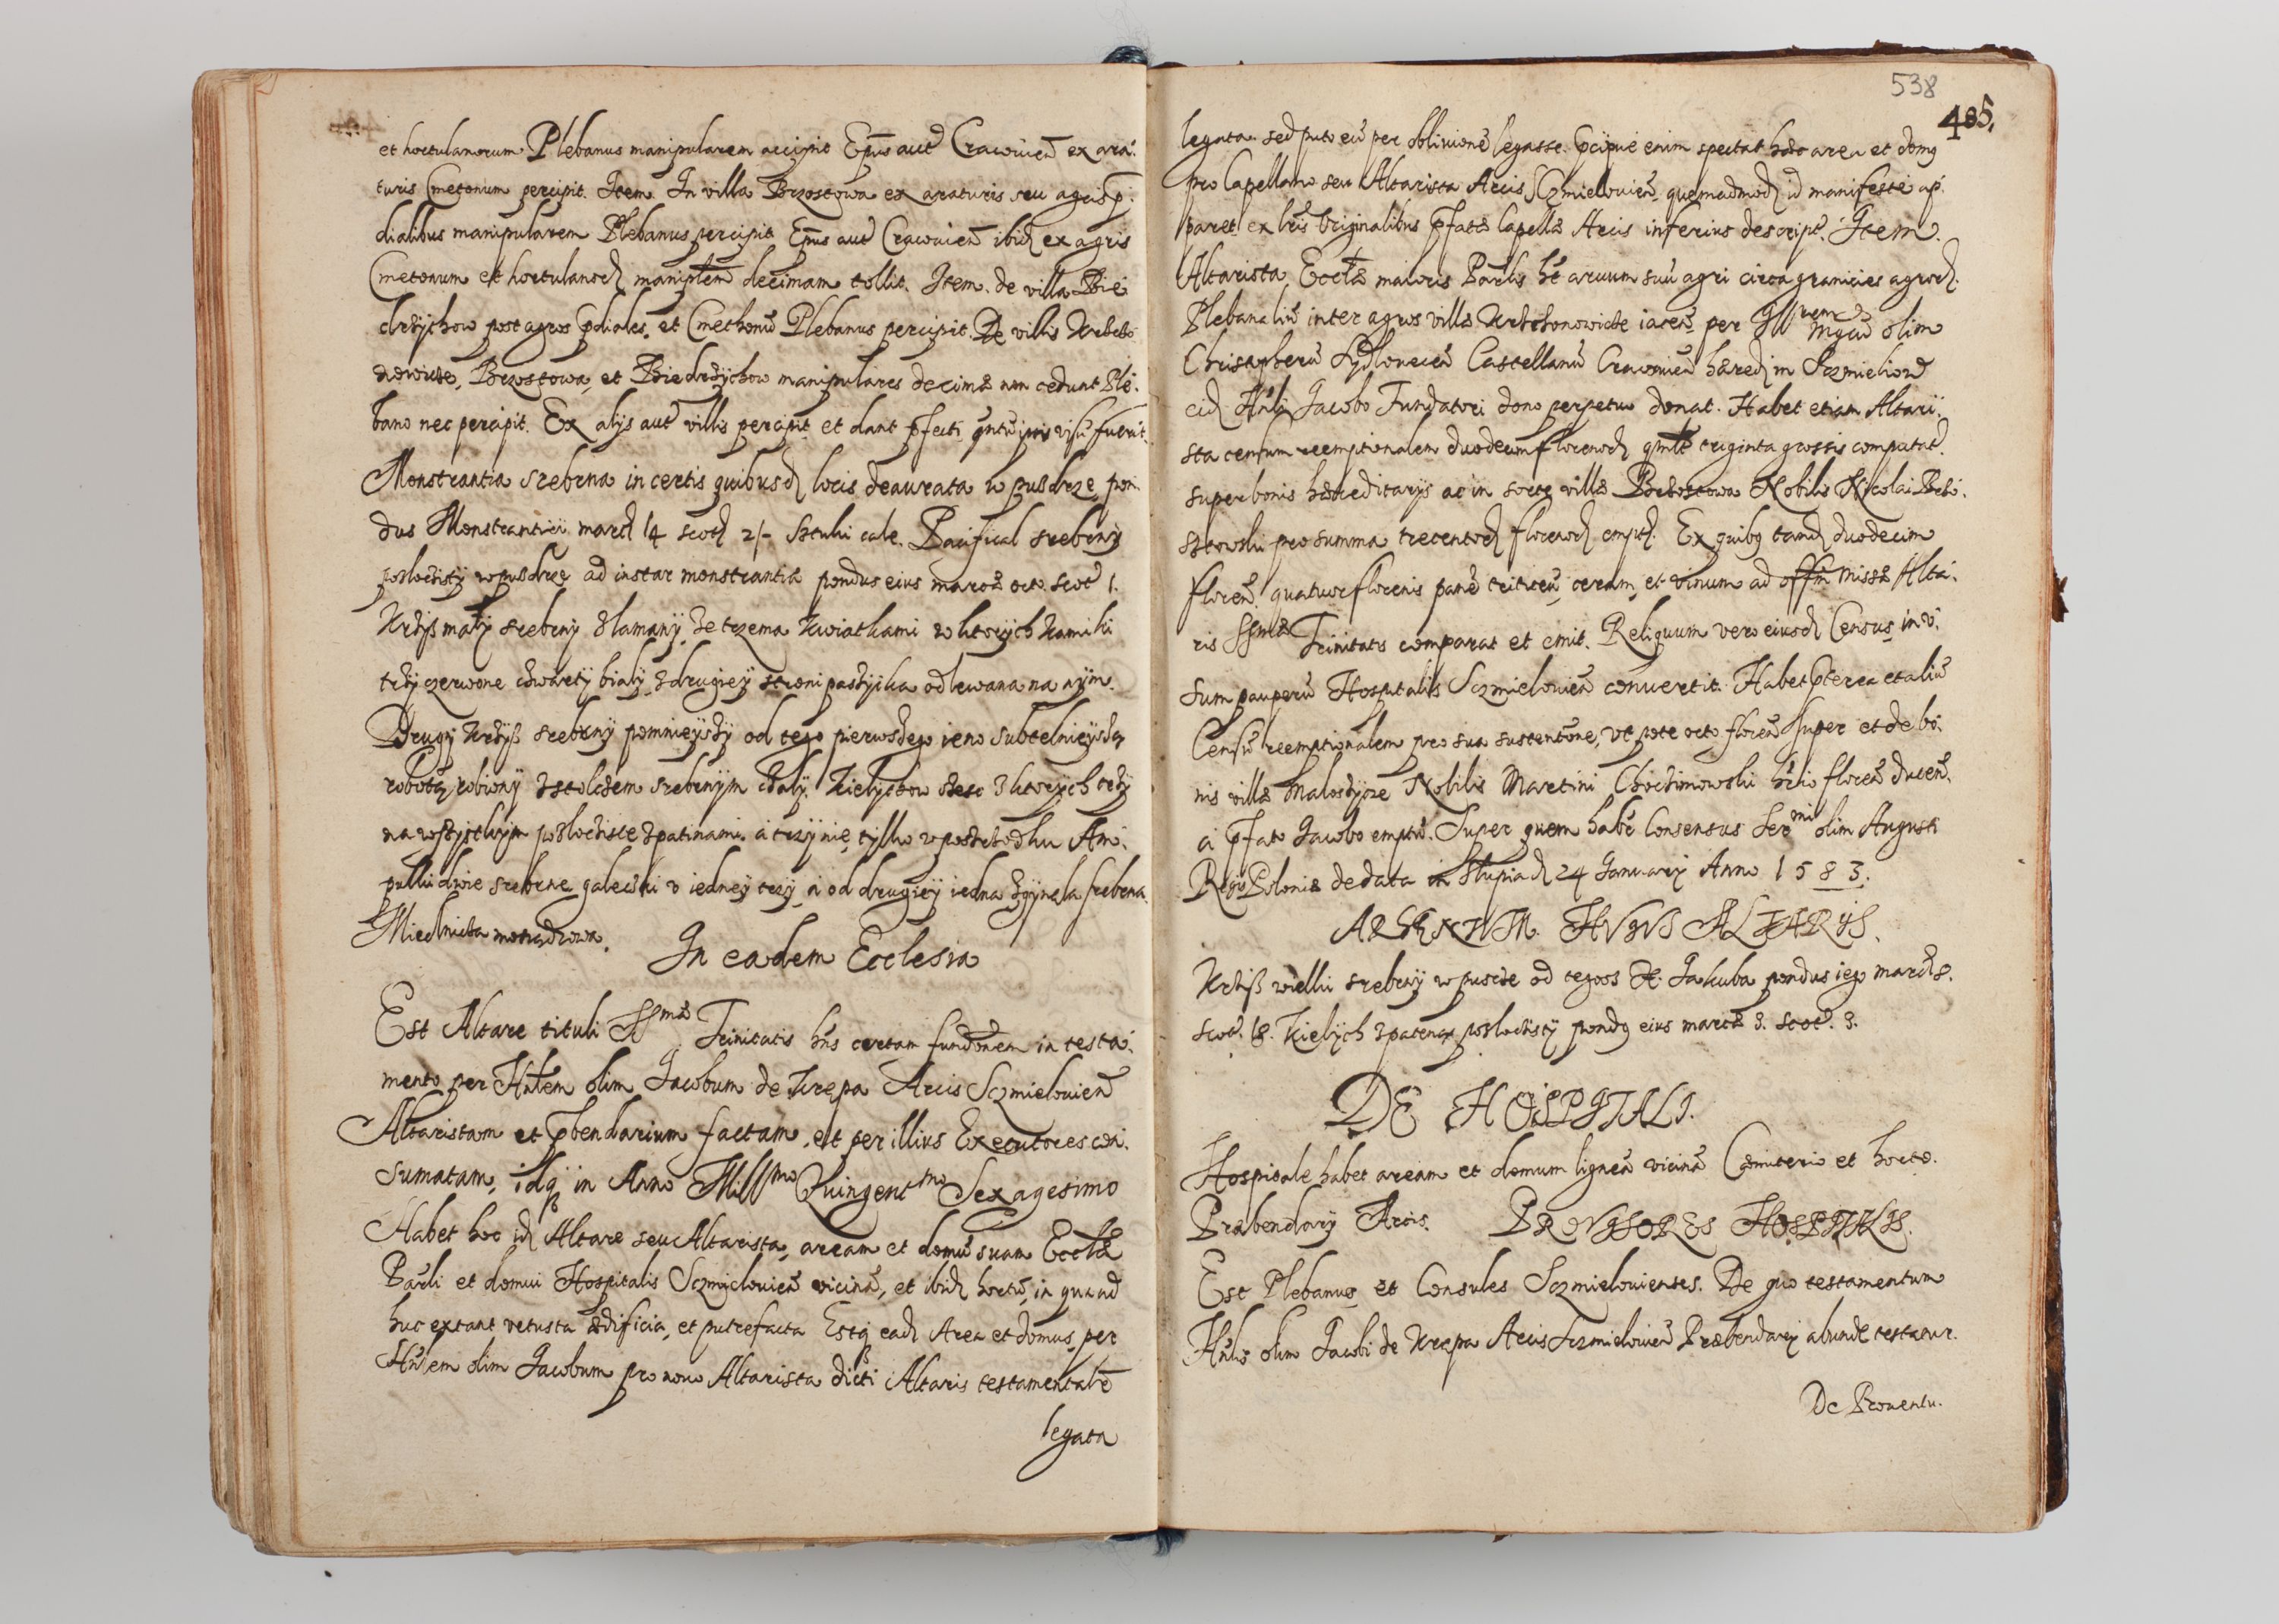 et hortulanorum Plebanus manipularem accipit Epũs aut̃ Cracouieñ ex ara-
turis Cmetonum percipit. Item In villa Brzostowa ex araturis seu agris p̱-
dialibus manipularem Plebanus percipit Epũs aut̃ Cracouieñ ibid̃ ex agris
Cmetonum et hortulanor̃ maniplem̃ decimam tollit. Item de villa Bie
drzÿchow post agros p̱diales, et Cmethonũ Plebanus percipit. De villis Krzczo
nowicze, Brzostowa, et Biedrzÿchow manipulares decimæ non cedunt Ple-
bano nec percipit. Ex alijs aut̃ villis percipit et dant p̱fecti visũ fuerit.
Monstrantia srebrna in certis quibusd̃ locis deaurata w puszdrze, pon-
dus Monstrantiei marc̃ 14 scot̃ 2/- Sztuki cale. Pacificał srebrnÿ
pozłocistÿ w puszdrze ad instar monstrantiæ pondus eius marcæ octo scot̃ 1.
Krzÿß małÿ srebrnÿ złamanÿ ze trzema kwiatkami w ktorÿch kamiki
trzÿ czerwone czwartÿ białÿ z drugieÿ stroni paszÿika odlewana na nÿm.
Drugÿ krzÿß srebrnÿ pomnieÿszÿ od tego pierwszego ieno subtelnieÿszą
robotą robionÿ z stolczem srebrnÿm czałÿ. Kielÿchow szesc z ktorÿch trzÿ
na wszÿstkÿm pozłociste z patinami. a trzÿ nie, tÿlko w poszrzodku Am-
pułki dwie srebrne gałeczki v iedneÿ trzÿ, a od drugieÿ iedna zgÿnęła srebrna.
Miednicza mosiądzowa.
In eadem Ecclesia
Est Altare tituli SSmæ Trinitatis hñs certam fundõnem in testa-
mento per Hñlem olim Jacobum de Krępa Arcis Sczmielouień
Altaristam et p̱bendarium factam, et per illius Executores con-
sumatam, idq̃ in Anno Millmo Quingentmo Sexagesimo
Habet hoc id̃ Altare seu Altarista, aream et domũ suam Ecclæ
Parli et domui Hospitalis Sczmielouień vicinã, et ibid̃ hortũ, in qua ad
huc extant vetusta ædificia, et putrefacta Estq̃ ead̃ Area et domus, per
Hñlem olim Jacobum pro nouo Altarista dicti Altaris testamentalẽ
legata
538
485.
legata. sed puto eũ per obliuionẽ legasse. P̱cipuè enim spectat hæc area et domg
pro Capellano seu Altarista Arcis Sczmielouień, quemadmod̃ id manifestè ap-
paret ex lr̃is originalibus p̱fatæ Capellæ Arcis inferius descript̃. Item.
Altarista Ecclæ maioris Parlis ht̃ aruum suũ agri circa granicies agror̃
Plebanaliũ inter agros villæ Krzczonowicze iaceñ, per Illrem Mgcũ olim
Christopherũ Sÿdłoueciũ Castellanũ Cracouień hæred̃ in Sczmieliow
eid̃ Hñli Jacobo Fundatori dono perpetuo donat. Habet etiam Altari-
sta censum reemptionalem duodecim florenor̃ qmlt triginta grossis computat̃.
super bonis hæreditarijs ac in sorte villæ Brzostowa Nobilis Nicolai Brzo-
stowski pro summa trecentor̃ florenor̃ empt̃. Ex quibg tand̃ duodecim
floreñ. quatuor florenis panẽ triticeũ, ceram, et vinum ad offm̃ missæ Alta-
ris SSmæ Trinitatis comparat et emit. Reliquum vero eiusd̃ Census in v-
sum pauperũ Hospitalis Sczmielouień conuertit. Habet p̱terea et aliũ
Censũ reemptionalem pro sua sustentõne, vt pote octo floreñ super et de bo-
nis villæ Małoszÿce Nobilis Martini Chocimowski floreñ duceñ.
a p̱fato Jacobo emptũ. Super quem habẽ Consensus Sermi olim Augusti
Regis Poloniæ de data in Słupia d̃ 24 Januarij Anno 1583.
ARGENTVM HVIVS ALTARIS.
Krzÿß wielki srebrnÿ w puscze od tegoos X. Jakuba pondus iego marc̃ 8.
scot̃. 18. Kielÿch z pateną pozłocistÿ pondg eius marcæ 3. scot̃. 3.
DE HOSPITALI.
Hospitale habet aream et domum ligneã vicinã Cæmiterio et horto.
Præbendarij Arcis. PROVISORES HOSPITALIS.
Est Plebanus et Consules Sczmielouienses. De quo testamentum
Hñlis olim Jacobi de Krępa Arcis Sczmielouień Præbendarij abundè testatur.
De Prouentu.